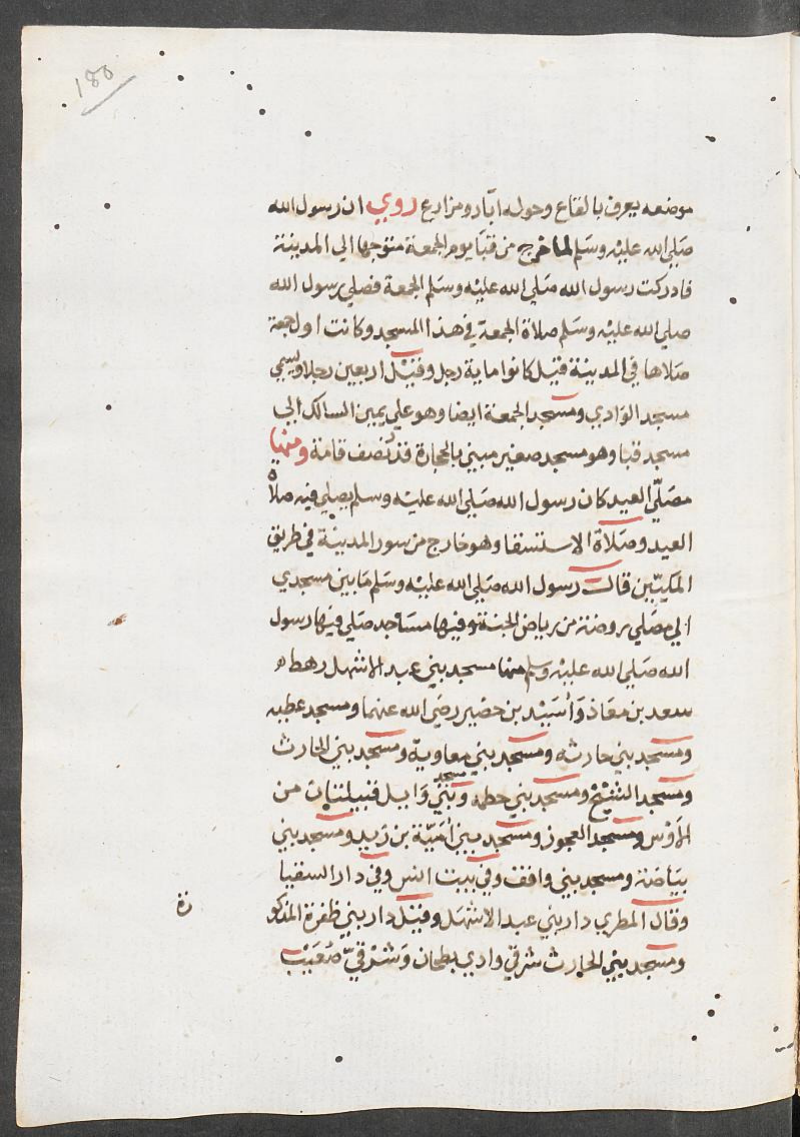 188
موضعه يعرف بالقاع وحوله ابار ومزارع روي ان رسول الله
صلي الله عليه وسلم لما خرج من قبا يوم الجمعة متوجها الي المدينة
فادركت رسول الله صلي الله عليه وسلم الجمعة فصلي رسول الله
صلي الله عليه وسلم صلاة الجمعة في هذا المسجد وكانت اول جمعة
صلاها في المدينة قيل كانوا ماية رجل وقيل اربعين رجلا ويسمي
مسجد الوادي ومسجد الجمعة ايضا وهو علي يمين السالك الي
مسجد قبا وهو مسجد صغير مبني بالحجارة قدر نصف قامة ومنها
مصلي العيد كان رسول الله صلي الله عليه وسلم يصلي فيه صلاة
العيد وصلاة الاستسقا وهو خارج من سور المدينة في طريق
المكيين قالت رسول الله صلي الله عليه وسلم ما بين مسجدي
الي مصلي روضة من رياض الجنة وفيها مساجد صلي فيها رسول
الله صلي الله عليه وسلم منها مسجد بني عبد الاشهل رهط
سعد بن معاذ وأسيد بن حضير رضي الله عنهما ومسجد عطبه
ومسجد بني حارثه ومسجد بني معاوية ومسجد بني الحارث
ومسجد الشيخ ومسجد بني حطمه ومسجد بني وايل قبيلتان من
الأوس ومسجد العجوز ومسجد بني أمية بن زيد ومسجد بني
بياضة ومسجد بني واقف وفي بيت انس وفي دار السقيا
وقال المطري دار بني عبد الاشهل وقيل دار بني ظفرة المذكو
رة
ومسجد بني الحارث شرقي وادي بطحان وشرقي صعيب